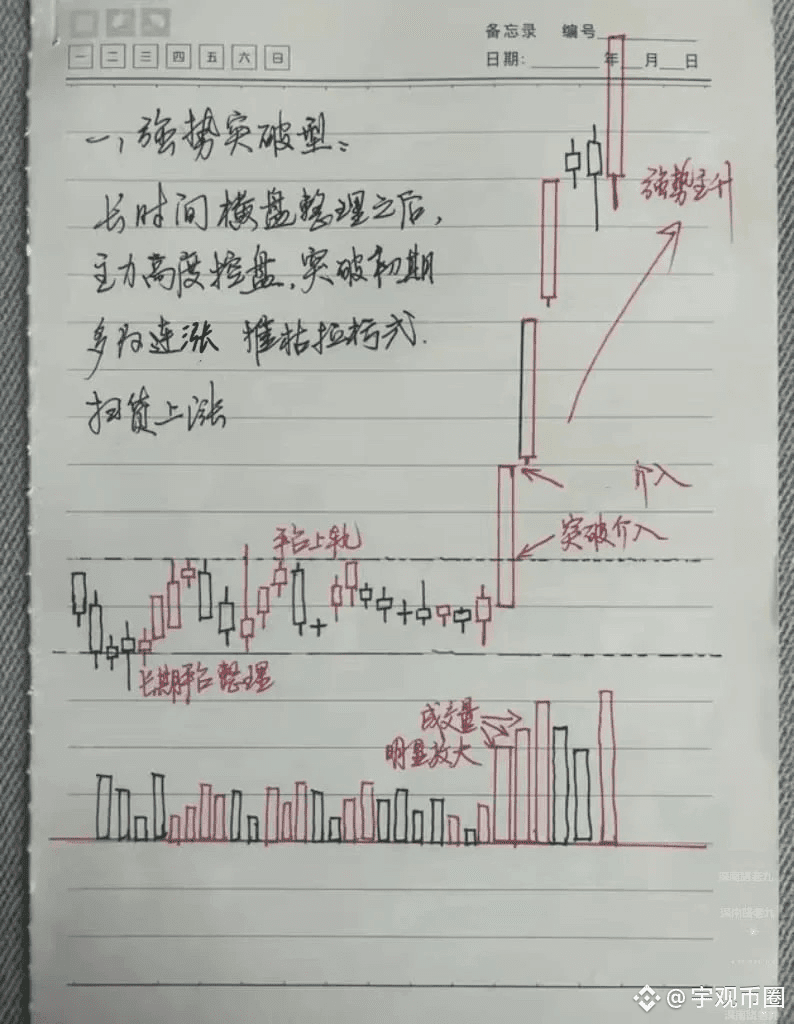 备忘录 编号
一 二 三 四 五 六 日
日期: 年 月 日
一、强势突破型:
长时间横盘整理之后,
主力高度控盘,突破初期
多为连涨 推枯拉朽式.
扫货上涨
强势主升
介入
突破介入
平台上轨
长期平台整理
成交量
明显放大
滨南路老九
滨南路老九
@宇观币圈
滨南路老九